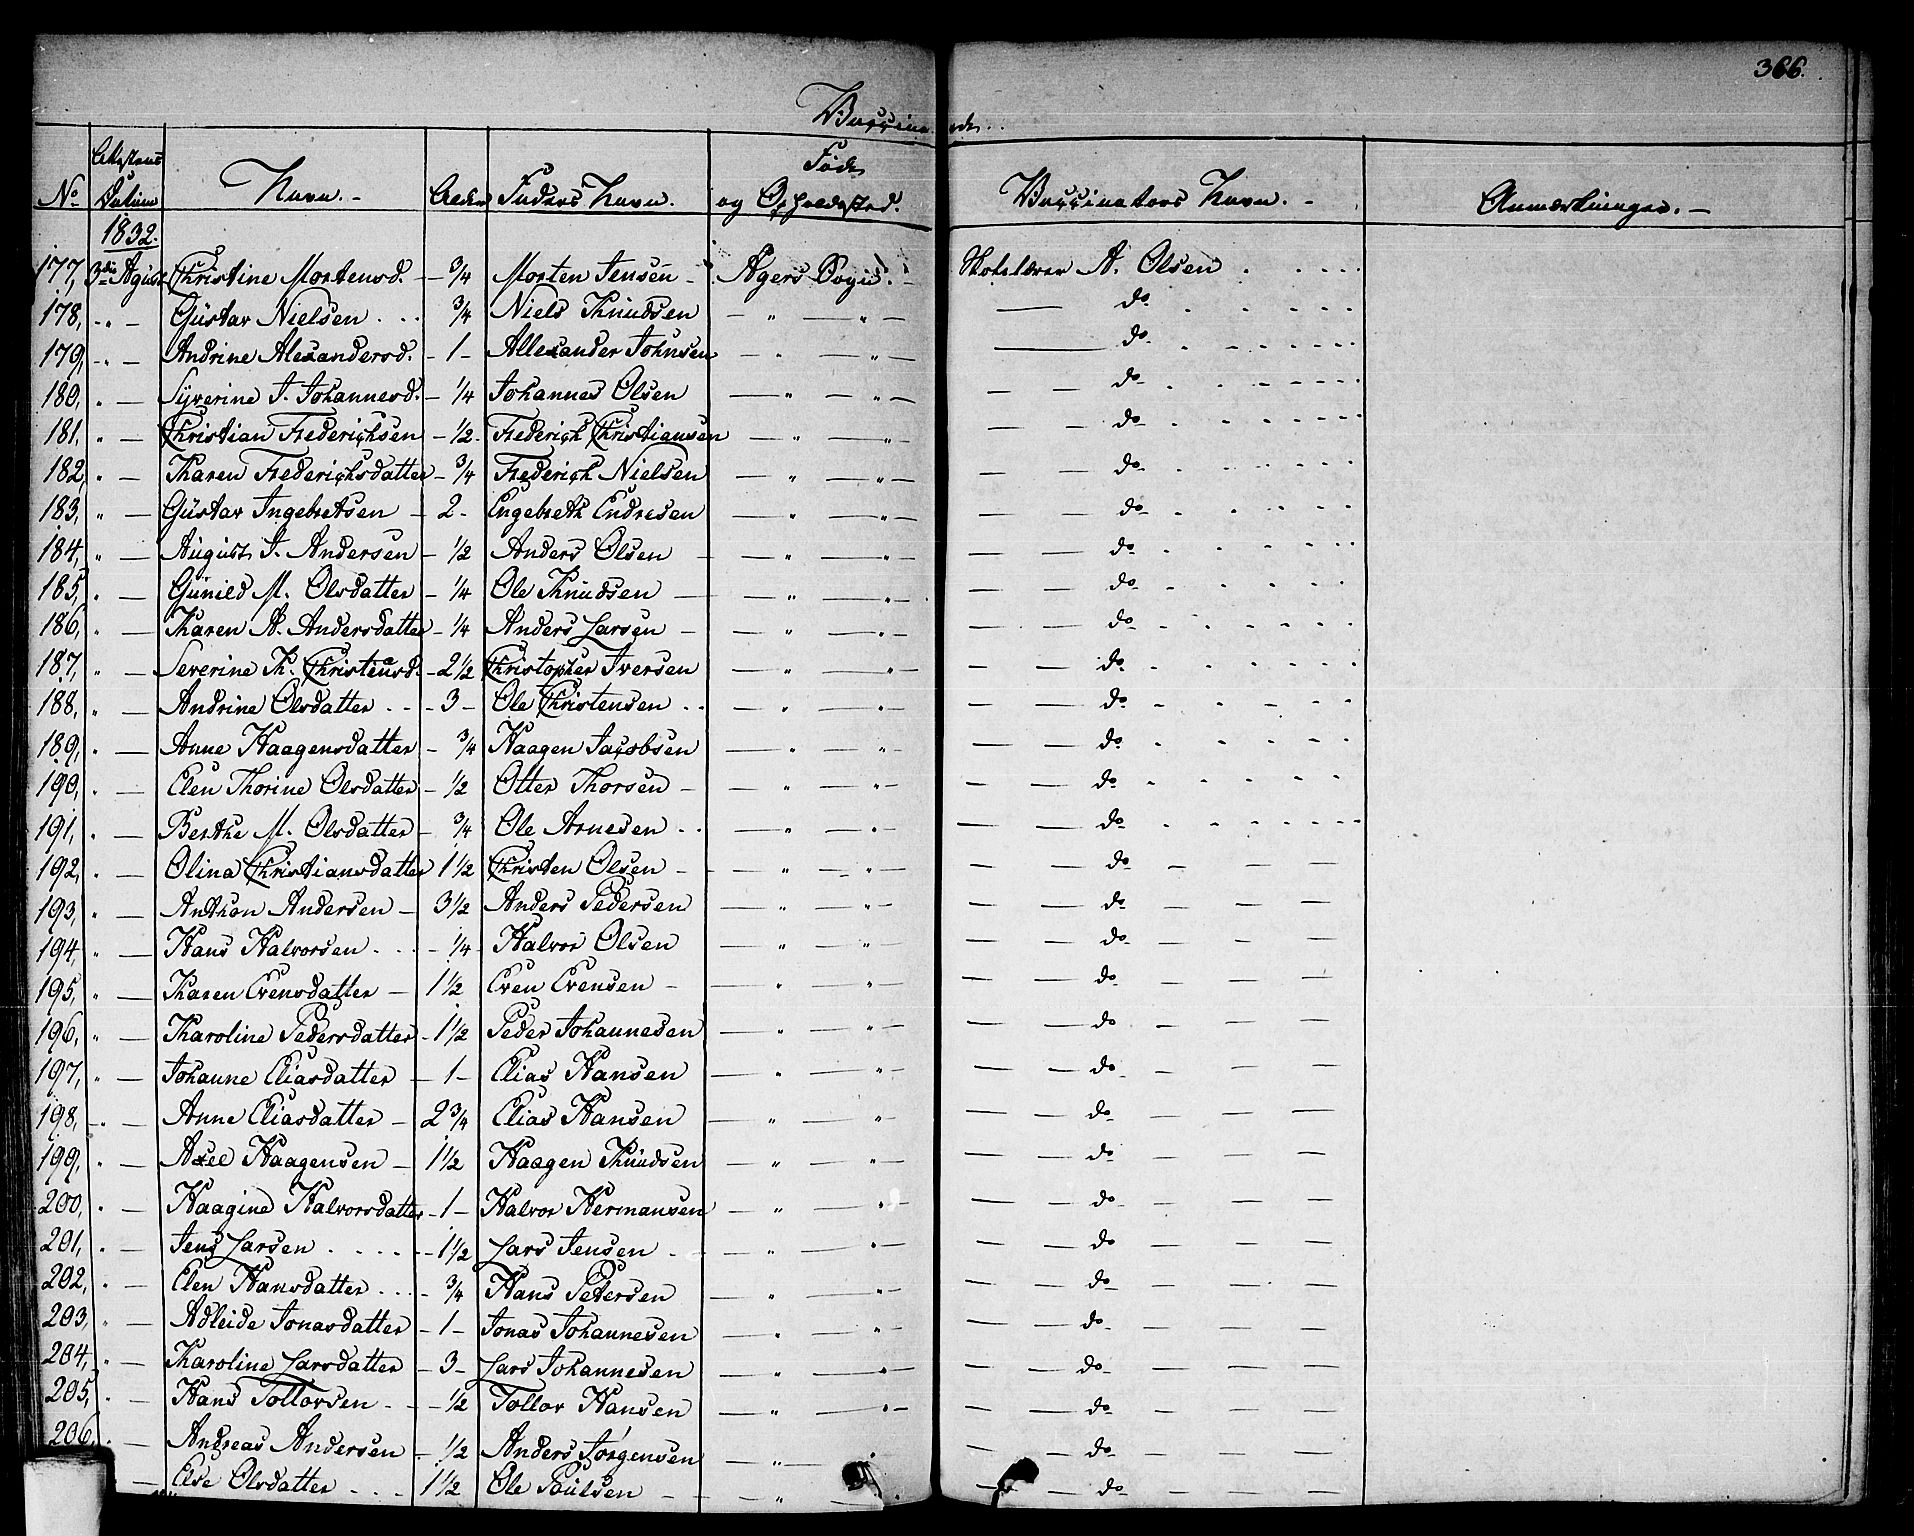 366.
Vaccinerede.
No. Attestens Datum Navn. Alder Faders Navn. Føde og Opholdssted. Vaccinators Navn. Anmærkninger.
1832.
177, 3die Agust Christine Mortensd. - 3/4 Morten Jensen - Agers Sogn. Skolelærer A. Olsen
178, " Gustav Nielsen 3/4 Niels Knudsen " " do
179, " Andrine Alexandersd. - 1 - Allexander Johnsen " " do
180, " Syverine J. Johannesd. - 1/4 Johannes Olsen " " do
181, " Christian Frederichsen - 1/2 - Frederich Christiansen " " do
182, " Karen Frederichsdatter - 3/4 Frederich Nielsen " " do
183, " Gustav Ingebretsen - 2 - Engebreth Endresen " " do
184, " August J. Andersen - 1/2 Anders Olsen " " do
185, " Gunild M. Olsdatter - 1/4 Ole Knudsen " " do
186, " Karen A. Andersdatter - 1/4 Anders Larsen " " do
187, " Severine K. Christensd. - 2 1/2 Christopher Iversen " " do
188, " Andrine Olsdatter - 3 - Ole Christensen " " do
189, " Anne Haagensdatter - 3/4 Haagen Jacobsen " " do
190, " Elen Thorine Olsdatter - 1/2 Otter Thorsen " " do
191, " Berthe M. Olsdatter - 3/4 Ole Arnesen " " do
192, " Olina Christiansdatter 1 1/2 Christen Olsen " " do
193, " Anthon Andersen - 3 1/2 Anders Pedersen " " do
194, " Hans Halvorsen - 1/4 - Halvor Olsen " " do
195, " Karen Evensdatter - 1 1/2 Even Evensen " " do
196, " Karoline Pedersdatter - 1 1/2 Peder Johannesen " " do
197, " Johanne Eliasdatter - 1 - Elias Hansen " " do
198, " Anne Eliasdatter - 2 3/4 Elias Hansen " " do
199, " Axel Haagensen - 1 1/2 Haagen Knudsen " " do
200, " Haagine Halvorsdatter - 1 - Halvor Hermansen " " do
201, " Jens Larsen - 1 1/2 Lars Jensen " " do
202, " Elen Hansdatter - 3/4 Hans Petersen " " do
203, " Adleide Jonasdatter - 1 - Jonas Johannesen " " do
204, " Karoline Larsdatter - 3 - Lars Johannesen " " do
205, " Hans Tollorsen - 1/2 Tollor Hansen " " do
206, " Andreas Andersen - 1/2 Anders Jørgensen " " do
Else Olsdatter 1 1/2 Ole Poulsen " " do